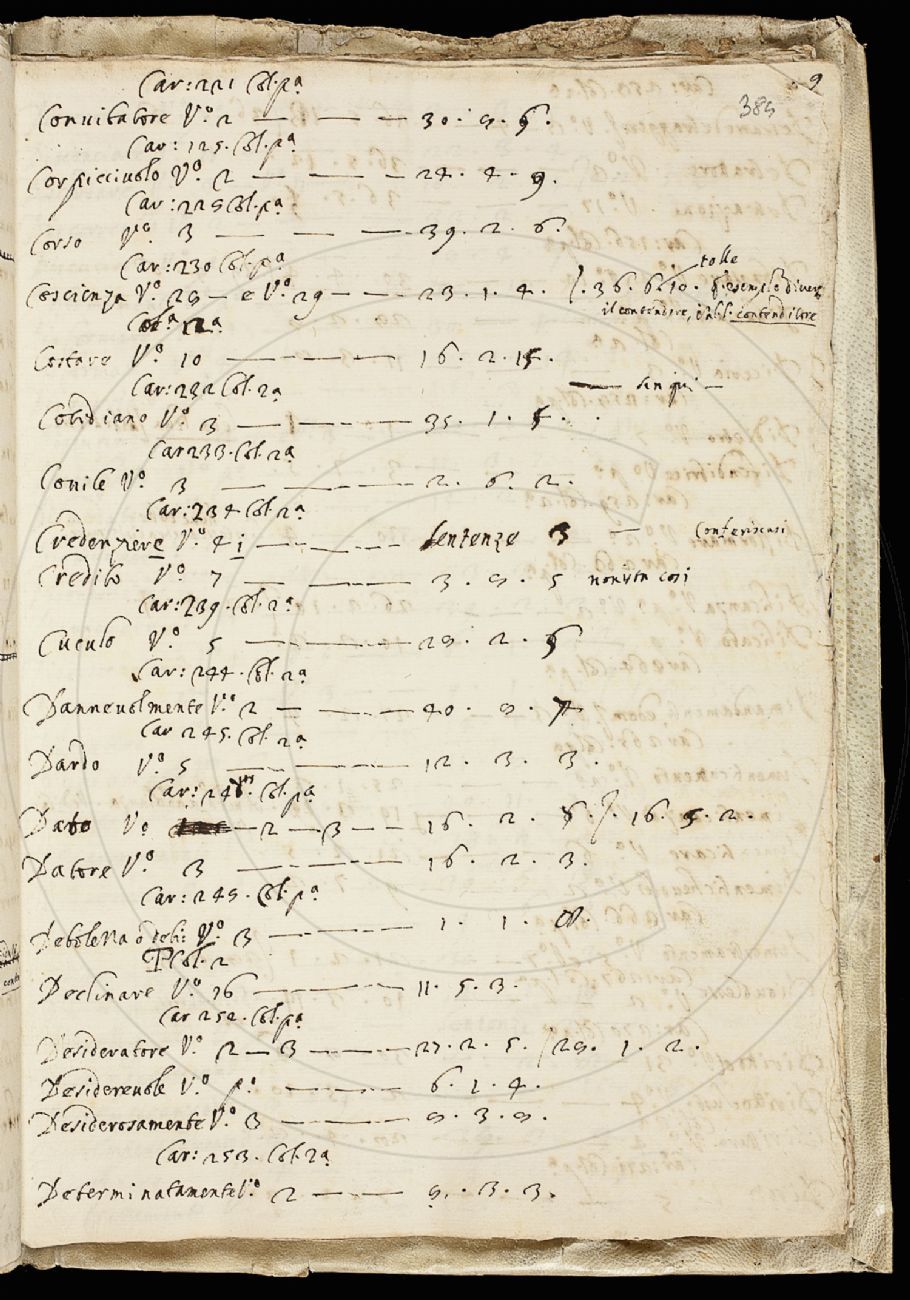 9
385
Car: 221 Col. pa
Conuitatore Vo. 2 — — — 30. 9. 6.
Car: 125. Col. pa
Corpicciuolo Vo. 2 — — — 24. 4. 9.
Car: 225 Col. pa
Corso Vo. 3 — — — 39. 2. 6.
Car: 230 Col. pa
tolle
Coscienza Vo. 29 — e Vo. 29 — — 23. 1. 4. 36. 6. 10.
il contendere, contenditore
Costare Vo. 10 — — 16. 2. 15.
Car: 232 Col. 2a
— sin qui —
Cotidiano Vo. 3 — — — 35. 1. 5.
Car 233. Col. 2a
Couile Vo. 3 — — — 2. 6. 2.
Car: 234 Col. 2a
Credenziere Vo. 41 — — sentenze 3 — Conferiscasi
Credito Vo. 7 — — 3. 9. 5 non sta cosi
Car: 239. Col. 2a
Cuculo Vo. 5 — — 29. 2. 5
Car: 244. Col. 2a
Danneuolmente Vo. 2 — — 40. 9. 7
Car 245. Col. 2a
Dardo Vo. 5 — — 12. 3. 3.
Car: 246. Col. pa
Dato Vo — 2 — 3 — — 16. 2. 6. 16. 5. 2.
Datore Vo. 3 — — 16. 2. 3.
Car: 249. Col. pa
Deboletta o deb: Vo. 3 — — 1. 1. 8.
Col. 2
Declinare Vo. 36 — — 11. 5. 3.
Car 252. Col. pa
Desideratore Vo. 2 — 3 — — 27. 2. 5. 29. 1. 2.
Desidereuole Vo. po — — 6. 1. 4.
Desiderosamente Vo. 3 — — 9. 3. 9.
Car: 253. Col. 2a
Determinatamente Vo. 2 — — 9. 3. 3.